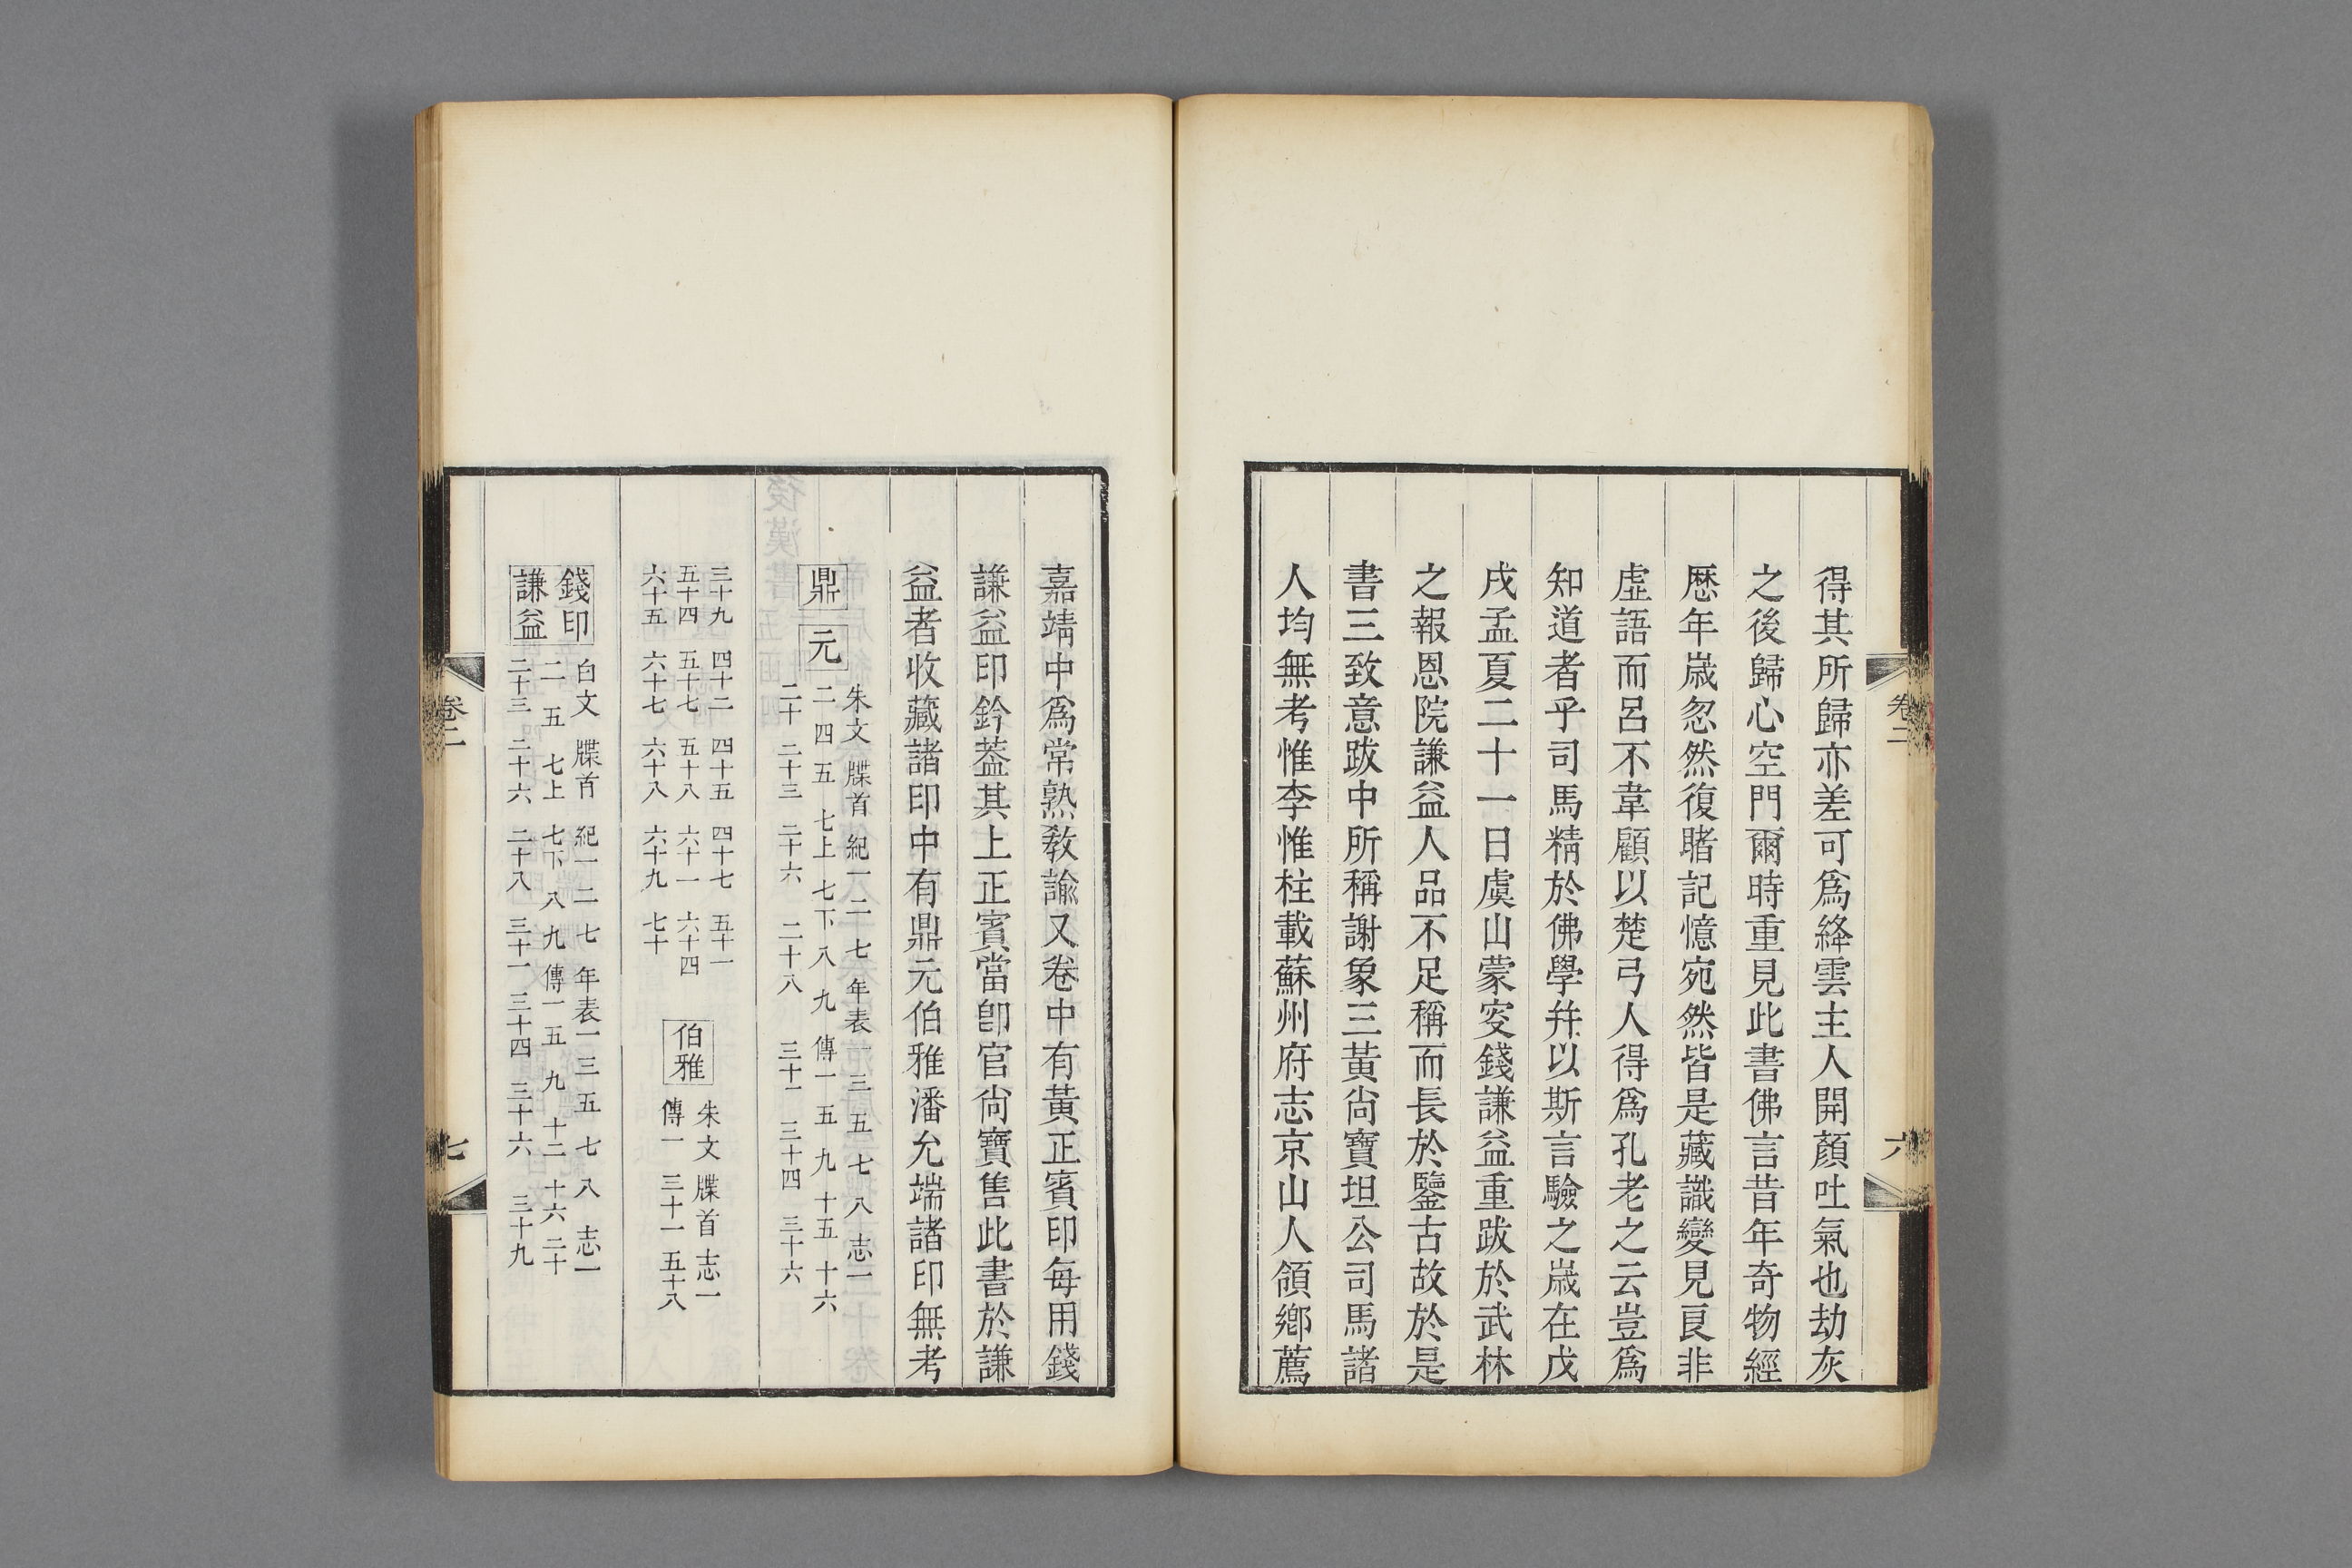 得其所歸亦差可爲絳雲主人開顏吐氣也劫灰
之後歸心空門爾時重見此書佛言昔年奇物經
歷年歲忽然復睹記憶宛然皆是藏識變見良非
虛語而呂不韋顧以楚弓人得爲孔老之云豈爲
知道者乎司馬精於佛學幷以斯言驗之歲在戊
戌孟夏二十一日虞山蒙叜錢謙益重跋於武林
之報恩院謙益人品不足稱而長於鑒古故於是
書三致意跋中所稱謝象三黃尙寶坦公司馬諸
人均無考惟李惟柱載蘇州府志京山人領鄉薦
卷二
六
嘉靖中爲常熟敎諭又卷中有黃正賓印每用錢
謙益印鈐葢其上正賓當卽官尙寶售此書於謙
益者收藏諸印中有鼎元伯雅潘允端諸印無考
鼎 元
朱文 牒首 紀一 二 七 年表一 三 五 七 八 志一
二 四 五 七上 七下 八 九 傳一 五 九 十五 十六
二十 二十三 二十六 二十八 三十一 三十四 三十六
三十九 四十二 四十五 四十七 五十一
五十四 五十七 五十八 六十一 六十四
六十五 六十七 六十八 六十九 七十
伯雅
朱文 牒首 志一
傳一 三十一 五十八
錢印
謙益
白文 牒首 紀一 二 七 年表一 三 五 七 八 志一
二 五 七上 七下 八 九 傳一 五 九 十二 十六 二十
二十三 二十六 二十八 三十一 三十四 三十六 三十九
卷二
七